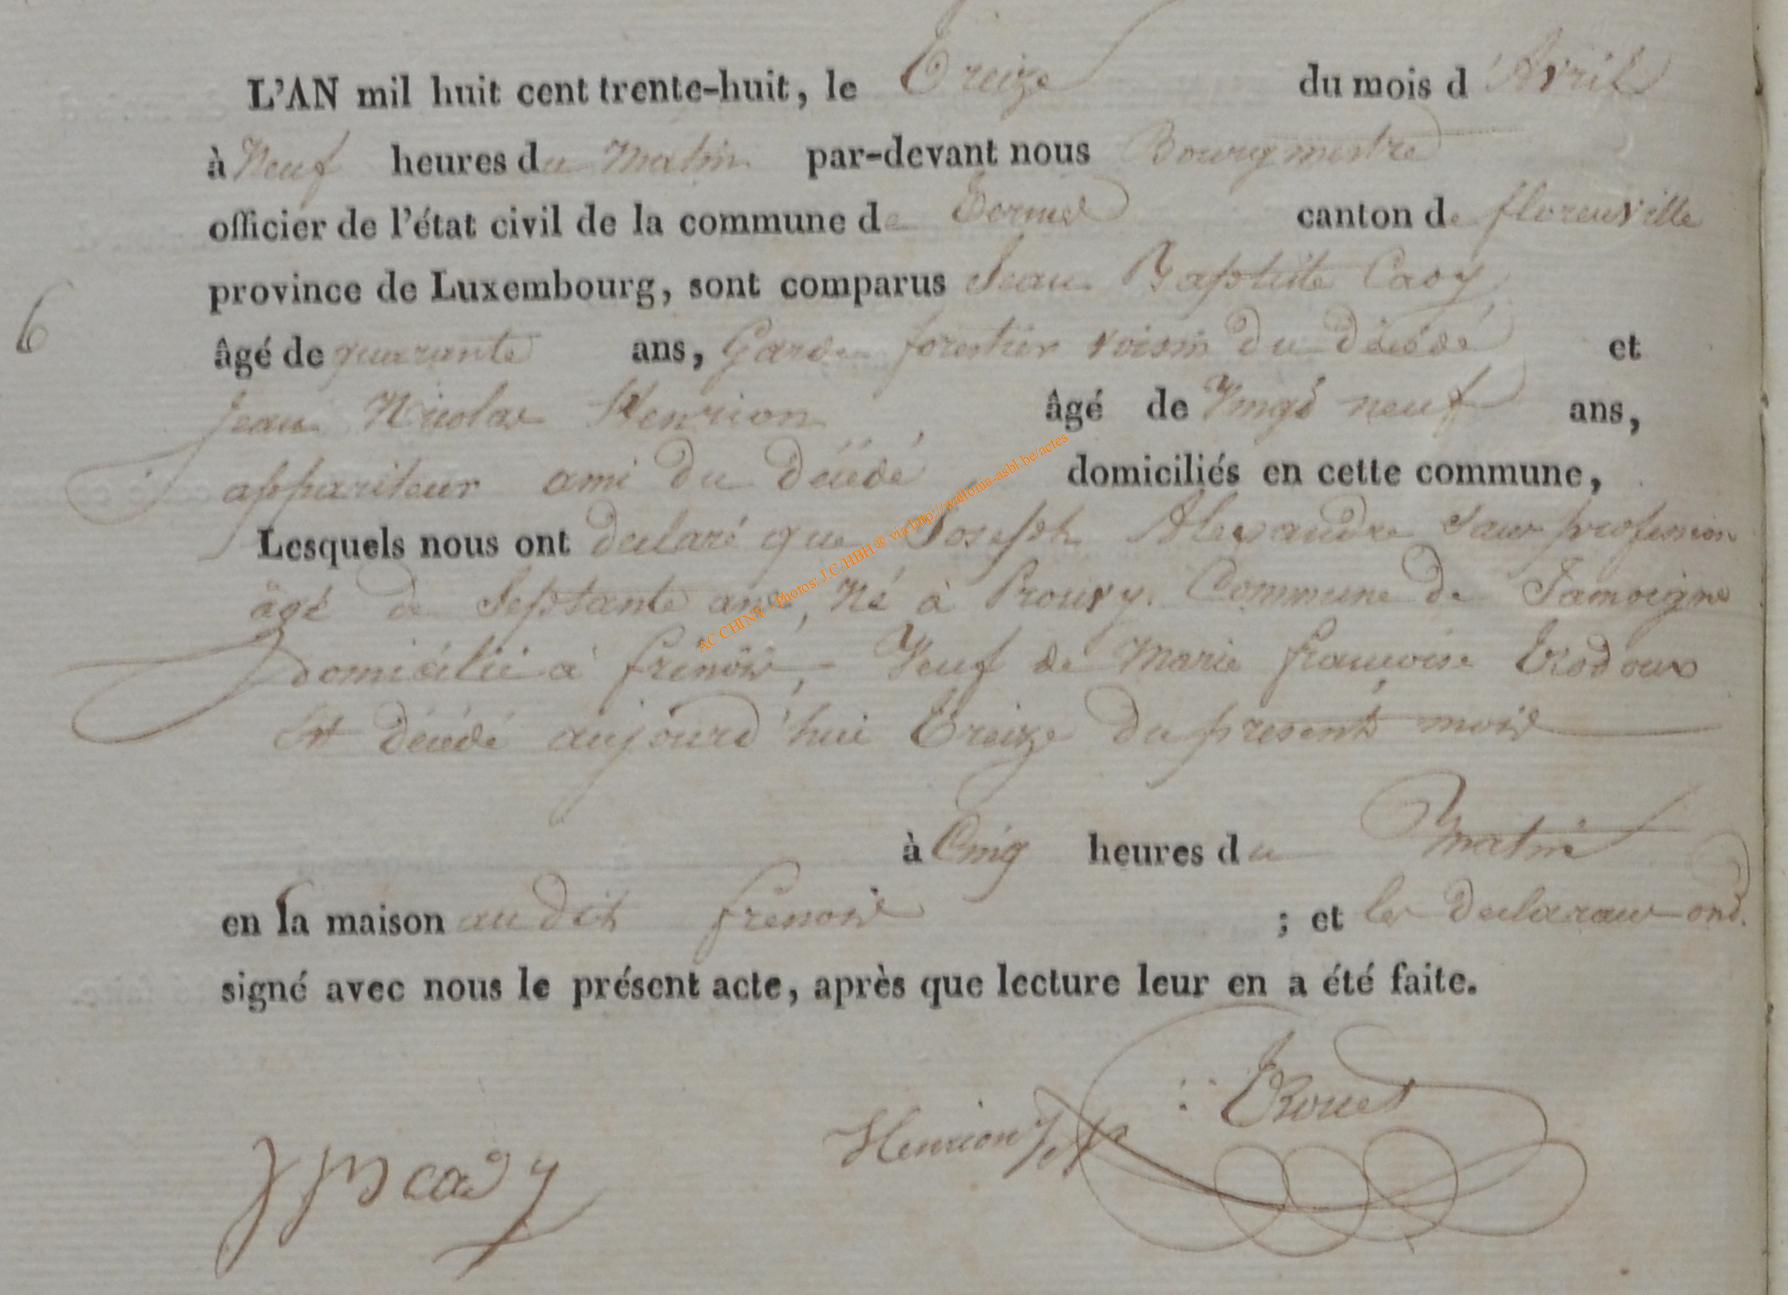 L'AN mil huit cent trente-huit, le Treize du mois d'Avril
à Neuf heures du Matin par-devant nous Bourgmestre
officier de l'état civil de la commune de Termes canton de florenville
province de Luxembourg, sont comparus Jean Baptiste Cady
6
âgé de quarante ans, Garde forestier voisin du décédé et
Jean Nicolas Henrion âgé de Vingt neuf ans,
appariteur ami du décédé domiciliés en cette commune,
Lesquels nous ont declaré que Joseph Alexandre sans profession
âgé de Septante ans, Né à Prouvy Commune de Jamoigne
domicilié à frenois, Veuf de Marie françoise
Est décédé aujourd'hui Treize du present mois
à Cinq heures du matin
en la maison audit frenois ; et les declarans ont
signé avec nous le présent acte, après que lecture leur en a été faite.
JB cady Henrion
AC CHINY - Photos: J.C/HBH ® via http://wallonia-asbl.be/actes